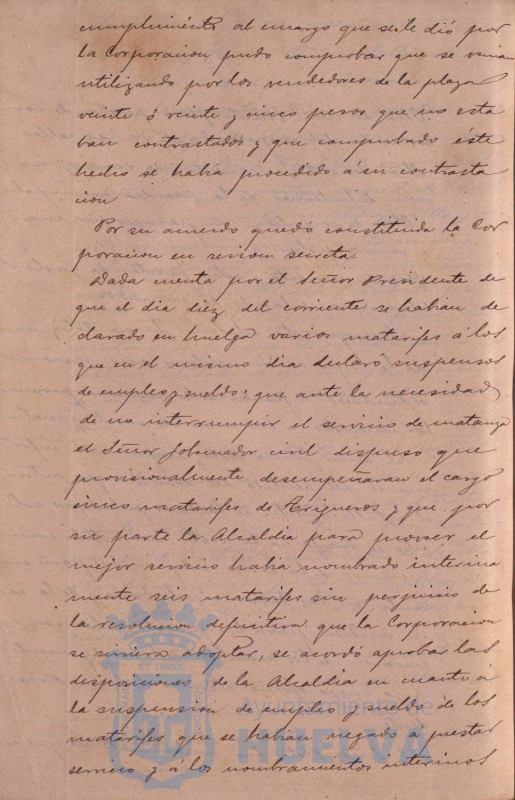 cumplimiento al encargo que se le dió por
la Corporacion pudo comprobar que se venian
utilizando por los vendedores de la plaza
veinte ó veinte y cinco pesos que no esta
ban contrastados y que comprobado éste
hecho se habia procedido á su contrasta
cion
Por su acuerdo quedó constituida la Cor
poracion en sesion secreta.
Dada cuenta por el Señor Presidente de
que el dia diez del corriente se habian de
clarado en huelga varios matarifes á los
que en el mismo dia declaró suspensos
de empleo y sueldo: que ante la necesidad
de no interrumpir el servicio de matanza
el Señor Gobernador civil dispuso que
provisionalmente desempeñaran el cargo
cinco matarifes de Trigueros y que por
su parte la Alcaldia para proveer el
mejor servicio habia nombrado interina
mente seis matarifes sin perjuicio de
la resolucion definitiva que la Corporacion
se sirviera adoptar, se acordó aprobar las
disposiciones de la Alcaldia en cuanto á
la suspension de empleo y sueldo de los
matarifes que se habian negado á prestar
servicio y á los nombramientos interinos
ET TERRA
HUELVA